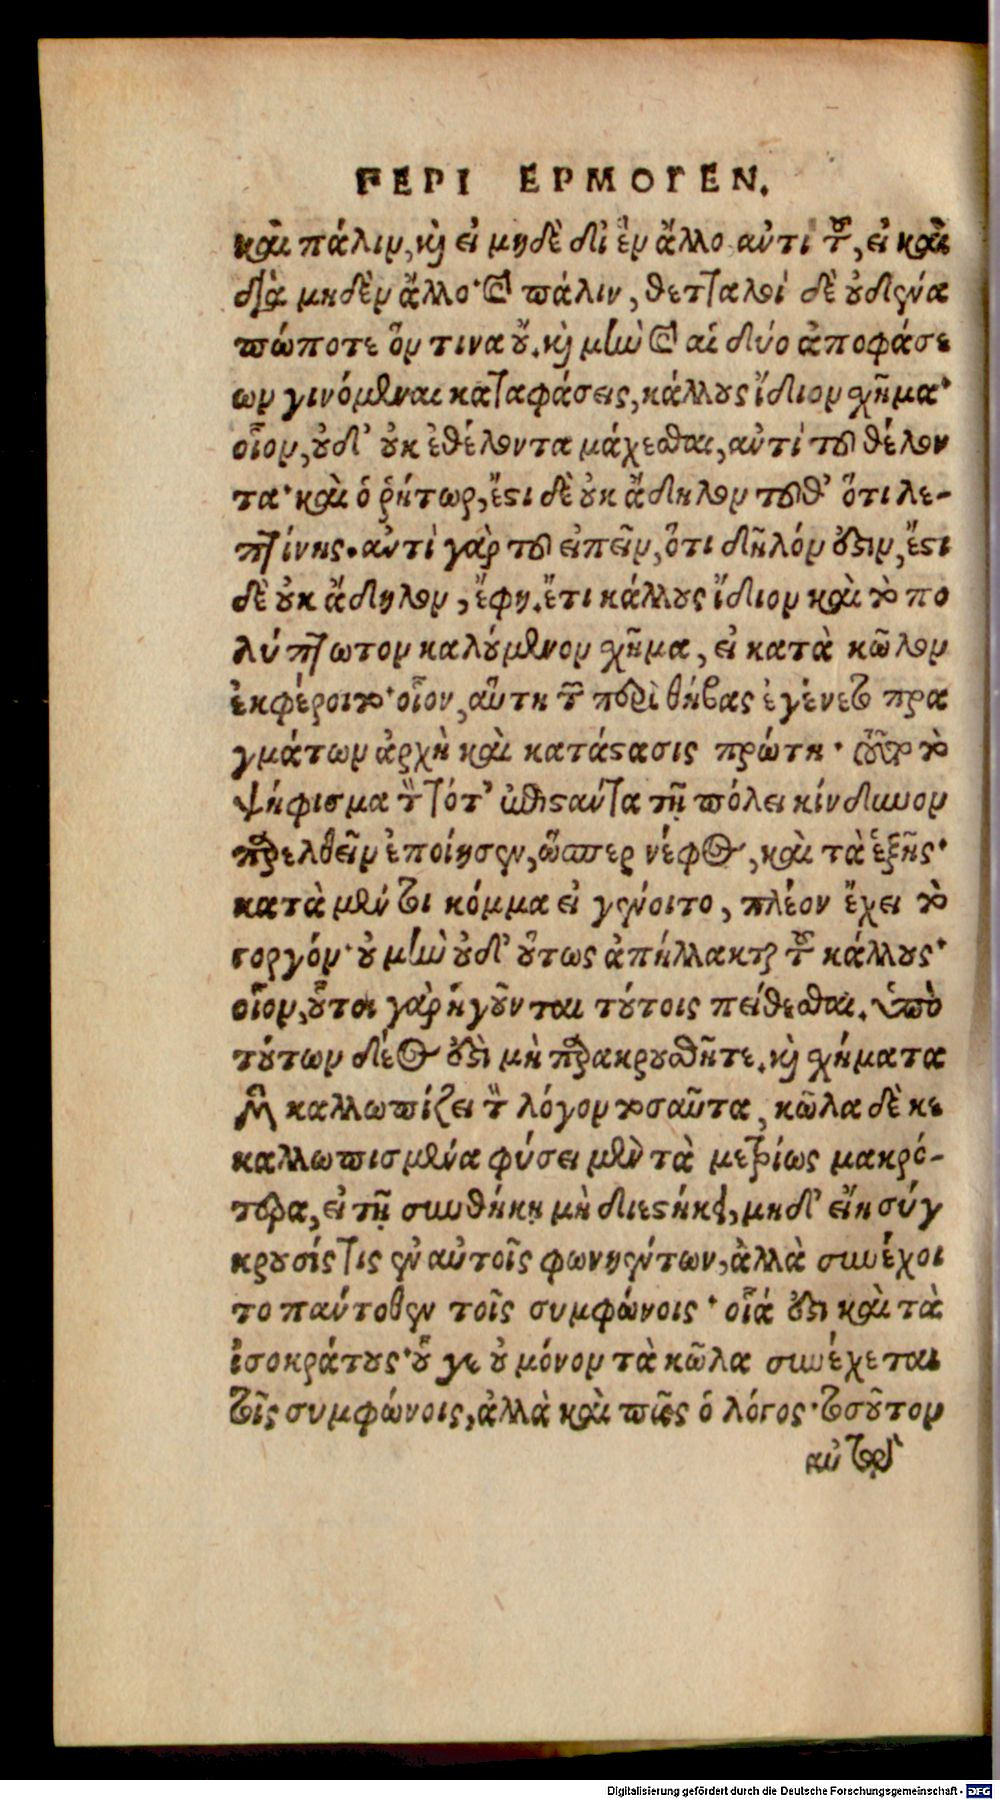 ΠΕΡΙ ΕΡΜΟΓΕΝ.
καὶ πάλιν, καὶ εἰ μηδὲ δι' ἓν ἄλλο, αὐτὶ τοῦ, εἰ καὶ
διὰ μηδὲν ἄλλο· καὶ πάλιν, θετταλοὶ δὲ οὐδένα
πώποτε ὅν τινα οὔ. καὶ μὴν καὶ αἱ δύο ἀποφάσε
ων γινόμεναι καταφάσεις, κάλλους ἴδιον σχῆμα·
οἷον, οὐδ' οὐκ ἐθέλοντα μάχεσθαι, αὐτὶ τοῦ θέλον
τα· καὶ ὁ ῥήτωρ, ἔστι δὲ οὐκ ἄδηλον τοῦθ' ὅτι λε-
πτίνης. αὐτὶ γὰρ τοῦ εἰπεῖν, ὅτι δῆλόν ἐστιν, ἔστι
δὲ οὐκ ἄδηλον, ἔφη. ἔτι κάλλους ἴδιον καὶ τὸ πο
λύπτωτον καλούμενον σχῆμα, εἰ κατὰ κῶλον
ἐκφέροιτο· οἷον, αὕτη τῶν περὶ θήβας ἐγένετο πρα
γμάτων ἀρχὴ καὶ κατάστασις πρώτη· τοῦτο τὸ
ψήφισμα τὸν τότ' ἐπιστάντα τῇ πόλει κίνδυνον
παρελθεῖν ἐποίησεν, ὥσπερ νέφος, καὶ τὰ ἑξῆς·
κατὰ μέν τοι κόμμα εἰ γένοιτο, πλέον ἔχει τὸ
γοργόν· οὐ μὴν οὐδ' οὕτως ἀπήλλακται τοῦ κάλλους·
οἷον, οὗτοι γὰρ ἡγοῦνται τούτοις πείθεσθαι. ὑπὸ
τούτων δέος ἐστὶ μὴ παρακρουσθῆτε. καὶ σχήματα
μὲν καλλωπίζει τὸν λόγον τοσαῦτα, κῶλα δὲ κε
καλλωπισμένα φύσει μὲν τὰ μετρίως μακρό-
τερα, εἰ τῇ συνθήκῃ μὴ διεστήκει, μηδ' εἴη σύγ
κρουσίς τις ἐν αὐτοῖς φωνηέντων, ἀλλὰ συνέχοι
το παντόθεν τοῖς συμφώνοις· οἷά ἐστι καὶ τὰ
ἰσοκράτους· οὗ γε οὐ μόνον τὰ κῶλα συνέχεται
τοῖς συμφώνοις, ἀλλὰ καὶ πᾶς ὁ λόγος· τοσοῦτον
αὐτῷ
Digitalisierung gefördert durch die Deutsche Forschungsgemeinschaft - DFG